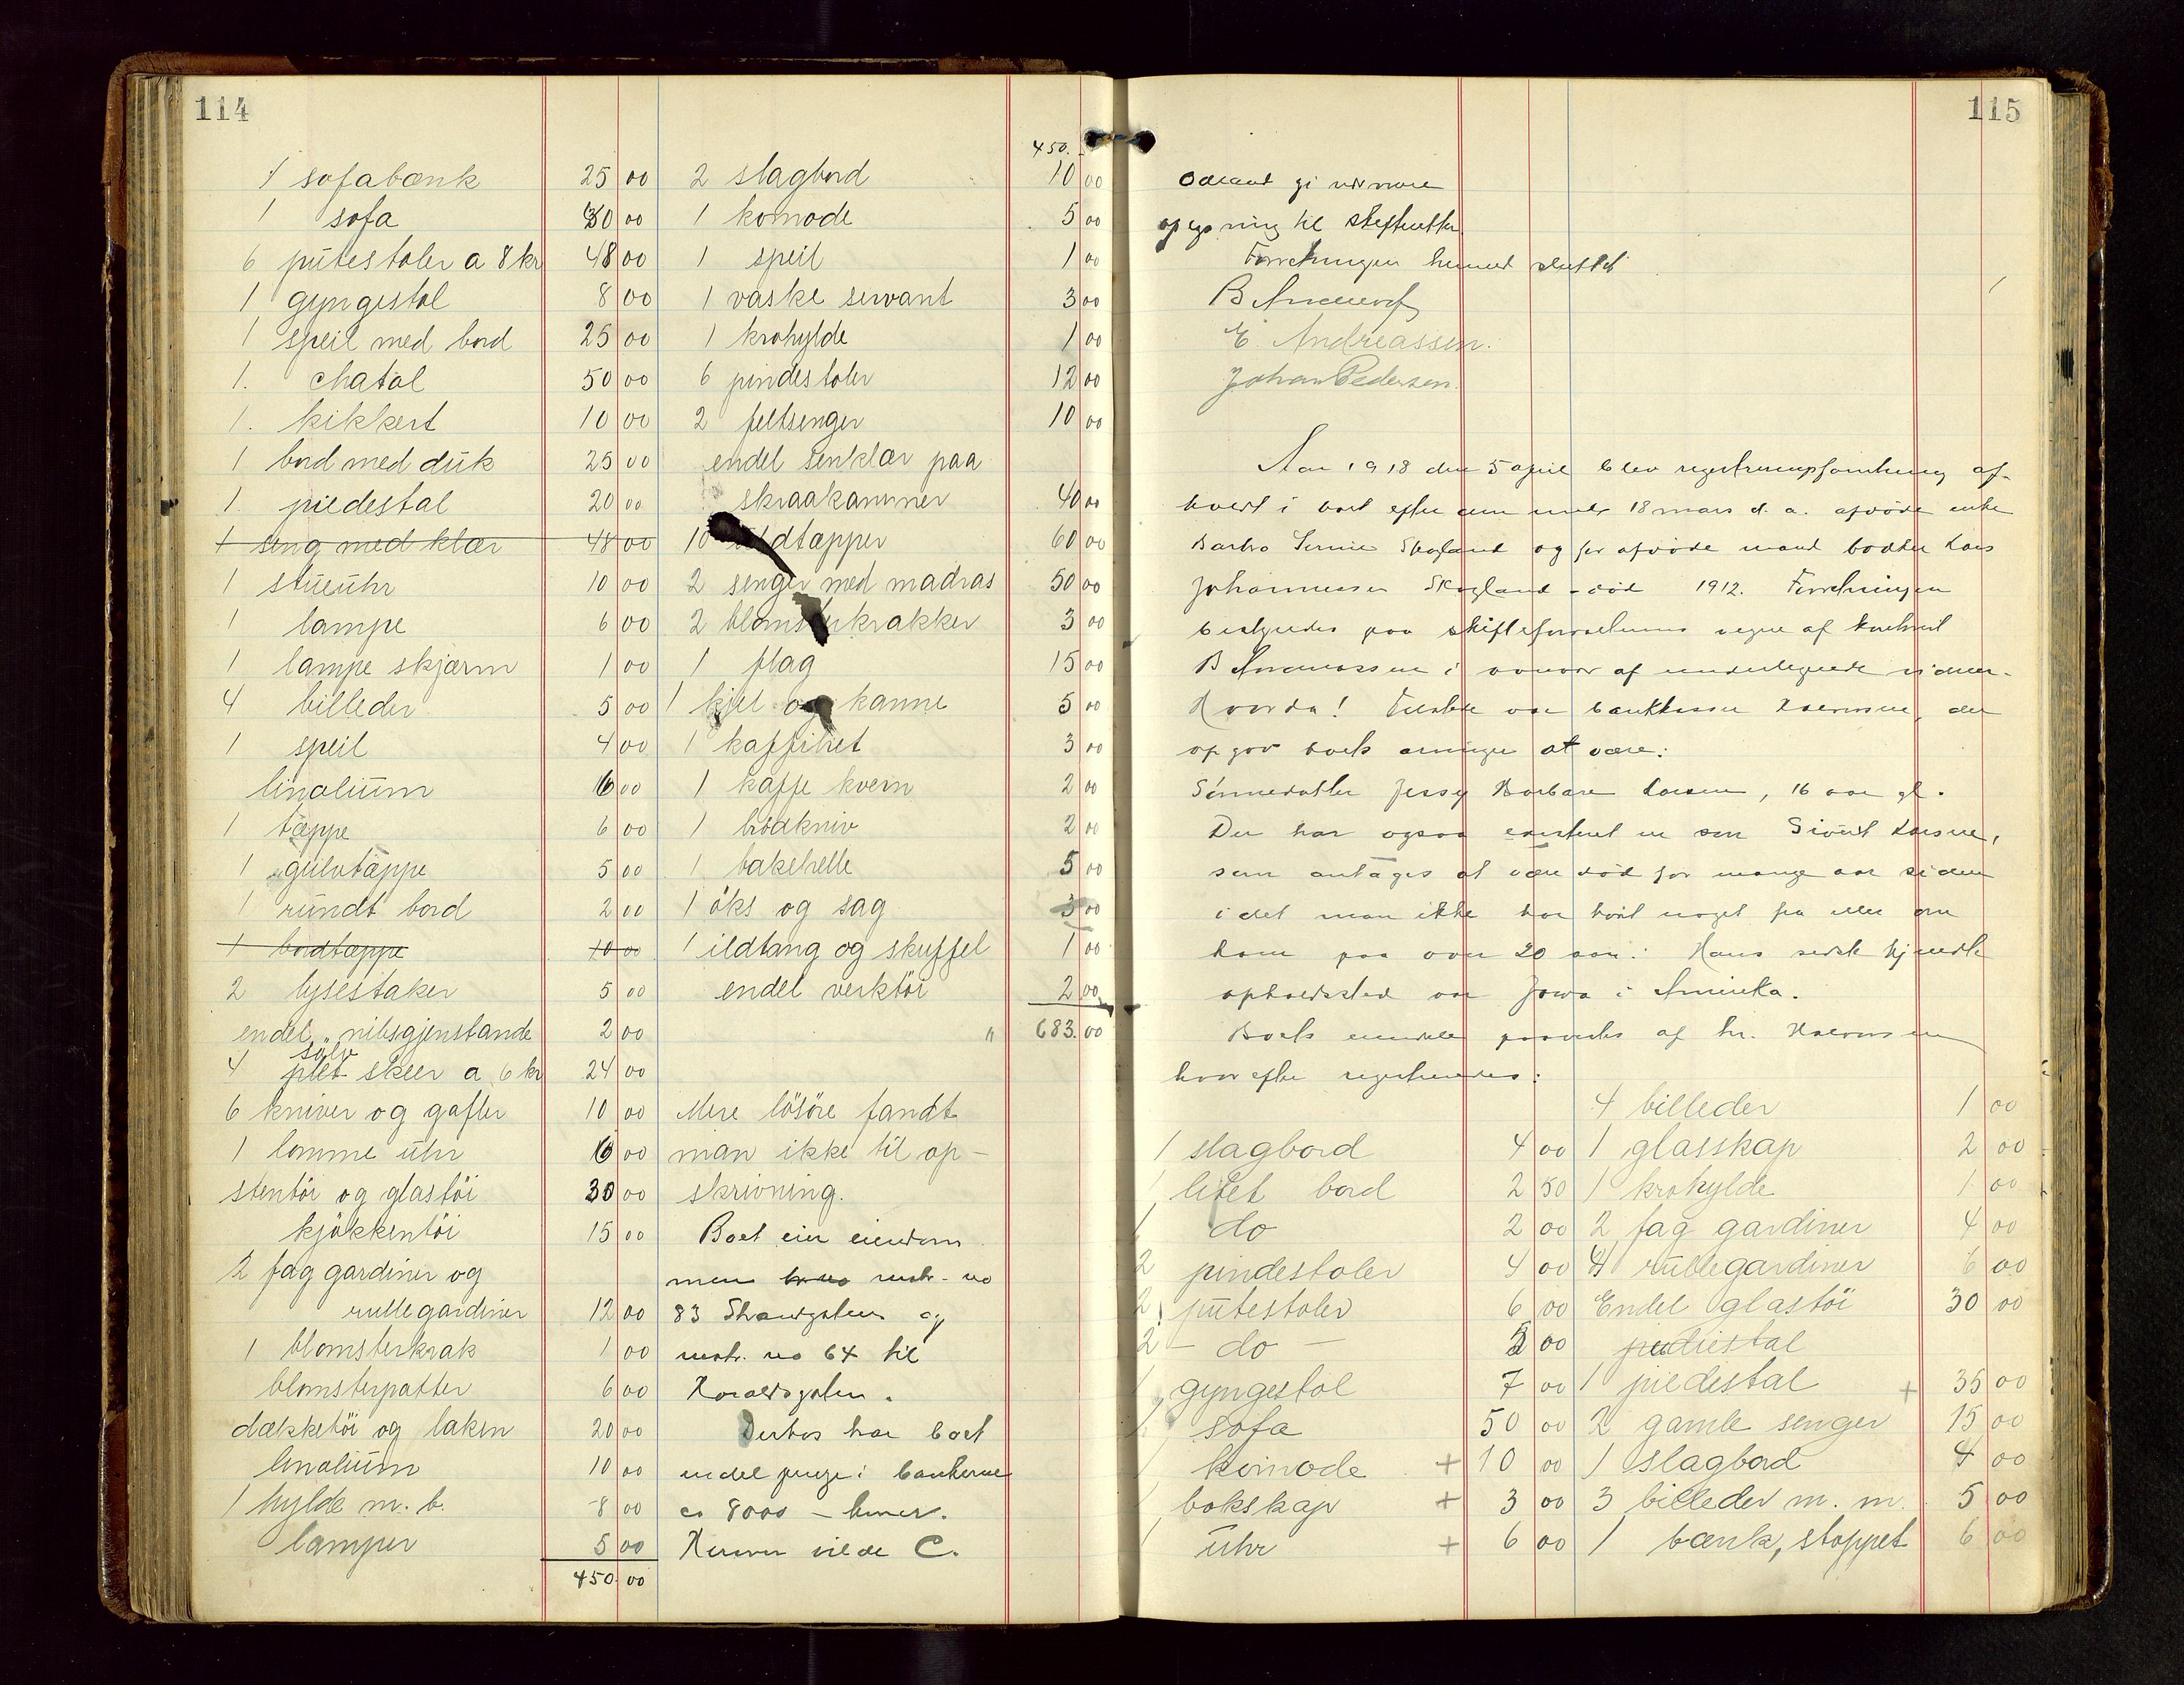 114
1 sofabænk 25 00
1 sofa 30 00
6 pütestoler a 8 kr 48 00
1 gyngestol 8 00
1 speil med bord 25 00
1. chatol 50 00
1. kikkert 10 00
1 bord med dük 25 00
1. piedestal 20 00
1 seng med klær 48 00
1 stüeühr 10 00
1 lampe 6 00
1 lampe skjærm 1 00
4 billeder 5 00
1 speil 4 00
linoliüm 6 00
1 tæppe 6 00
1 gülvtæppe 5 00
1 ründt bord 2 00
1 bordtæppe 10 00
2 lysestaker 5 00
endel nibsgjenstande 2 00
sølv
4 plet skeer a 6 kr 24 00
6 kniver og gafler 10 00
1 lomme ühr 6 00
stentöi og glastöi 30 00
kjökkentöi 15 00
2 fag gardiner og
rullegardiner 12 00
1 blomsterkrak 1 00
blomsterpotter 6 00
dækketöi og laken 20 00
linoliüm 10 00
1 hylde m. b. 8 00
lamper 5 00
450 00
450.-
2 slagbord 10 00
1 komode 5 00
1 speil 1 00
1 vaske servant 3 00
1 krohylde 1 00
6 pindestoler 12 00
2 feltsenger 10 00
endel senklær paa
skraakammer 40 00
10 uldtæpper 60 00
2 senger med madras 50 00
2 blomsterkrakker 3 00
1 flag 15 00
1 kjel og kanne 5 00
1 kaffihet 3 00
1 kaffe kvern 2 00
1 brödkniv 2 00
1 bakehelle 5 00
1 öks og sag 3 00
1 ildtang og skuffel 1 00
endel verktöi 2 00
" 683.00
Mere lösöre fandt
man ikke til op-
skrivning.
Boet eier eiendom
men matr. no
83 Strandgaten og
matr. no 64 til
Haraldsgaten.
Desuten har boet
endel penge i bankerne
ca 8000 - kroner.
vilde C.
115
Odland gi nærmere
opgjøring til skifteretten
Forretningen hermed sluttet
B Andreassen
E. Andreassen.
Johan Pedersen.
Aar 1918 den 5 april blev registreringsforretning af-
holdt i boet efter den under 18 mars d. a. afdöde enke
Skogland og før afdöde mand Lars
Johannessen Skogland - död 1912. Forretningen
bestyredes paa skifteforvalterens vegne af
B Andreassen i nærvær af undertegnede vidner.
Hvorda! Tilstede var bankkasserer der
opgav boets arvinger at være:
Sönnedatter Jessy Barbara Larsen, 16 aar gl.
Der har ogsaa existeret en sön Sivert Larsen,
som antages at være död for mange aar siden
idet man ikke har hört noget fra eller om
ham paa over 20 aar. Hans sidste kjendte
opholdssted var Jowa i Amerika.
Boets eiendele paavistes af hr.
hvorefter registreredes:
1 slagbord 4 00
1 litet bord 2 50
1 do 2 00
2 pindestoler 4 00
2 pütestoler 6 00
2 - do - 3 00
1 gyngestol 7 00
1 sofa 50 00
1 komode + 10 00
1 bokskap + 3 00
1 ühr + 6 00
4 billeder 1 00
1 glasskap 2 00
1 krohylde 1 00
2 fag gardiner 4 00
4 rüllegardiner 6 00
Endel glastöi 30 00
pediestal
1 piedestal + 35 00
2 gamle senger 15 00
1 slagbord 4 00
3 billeder m. m. 5 00
1 bænk, stoppet 6 00